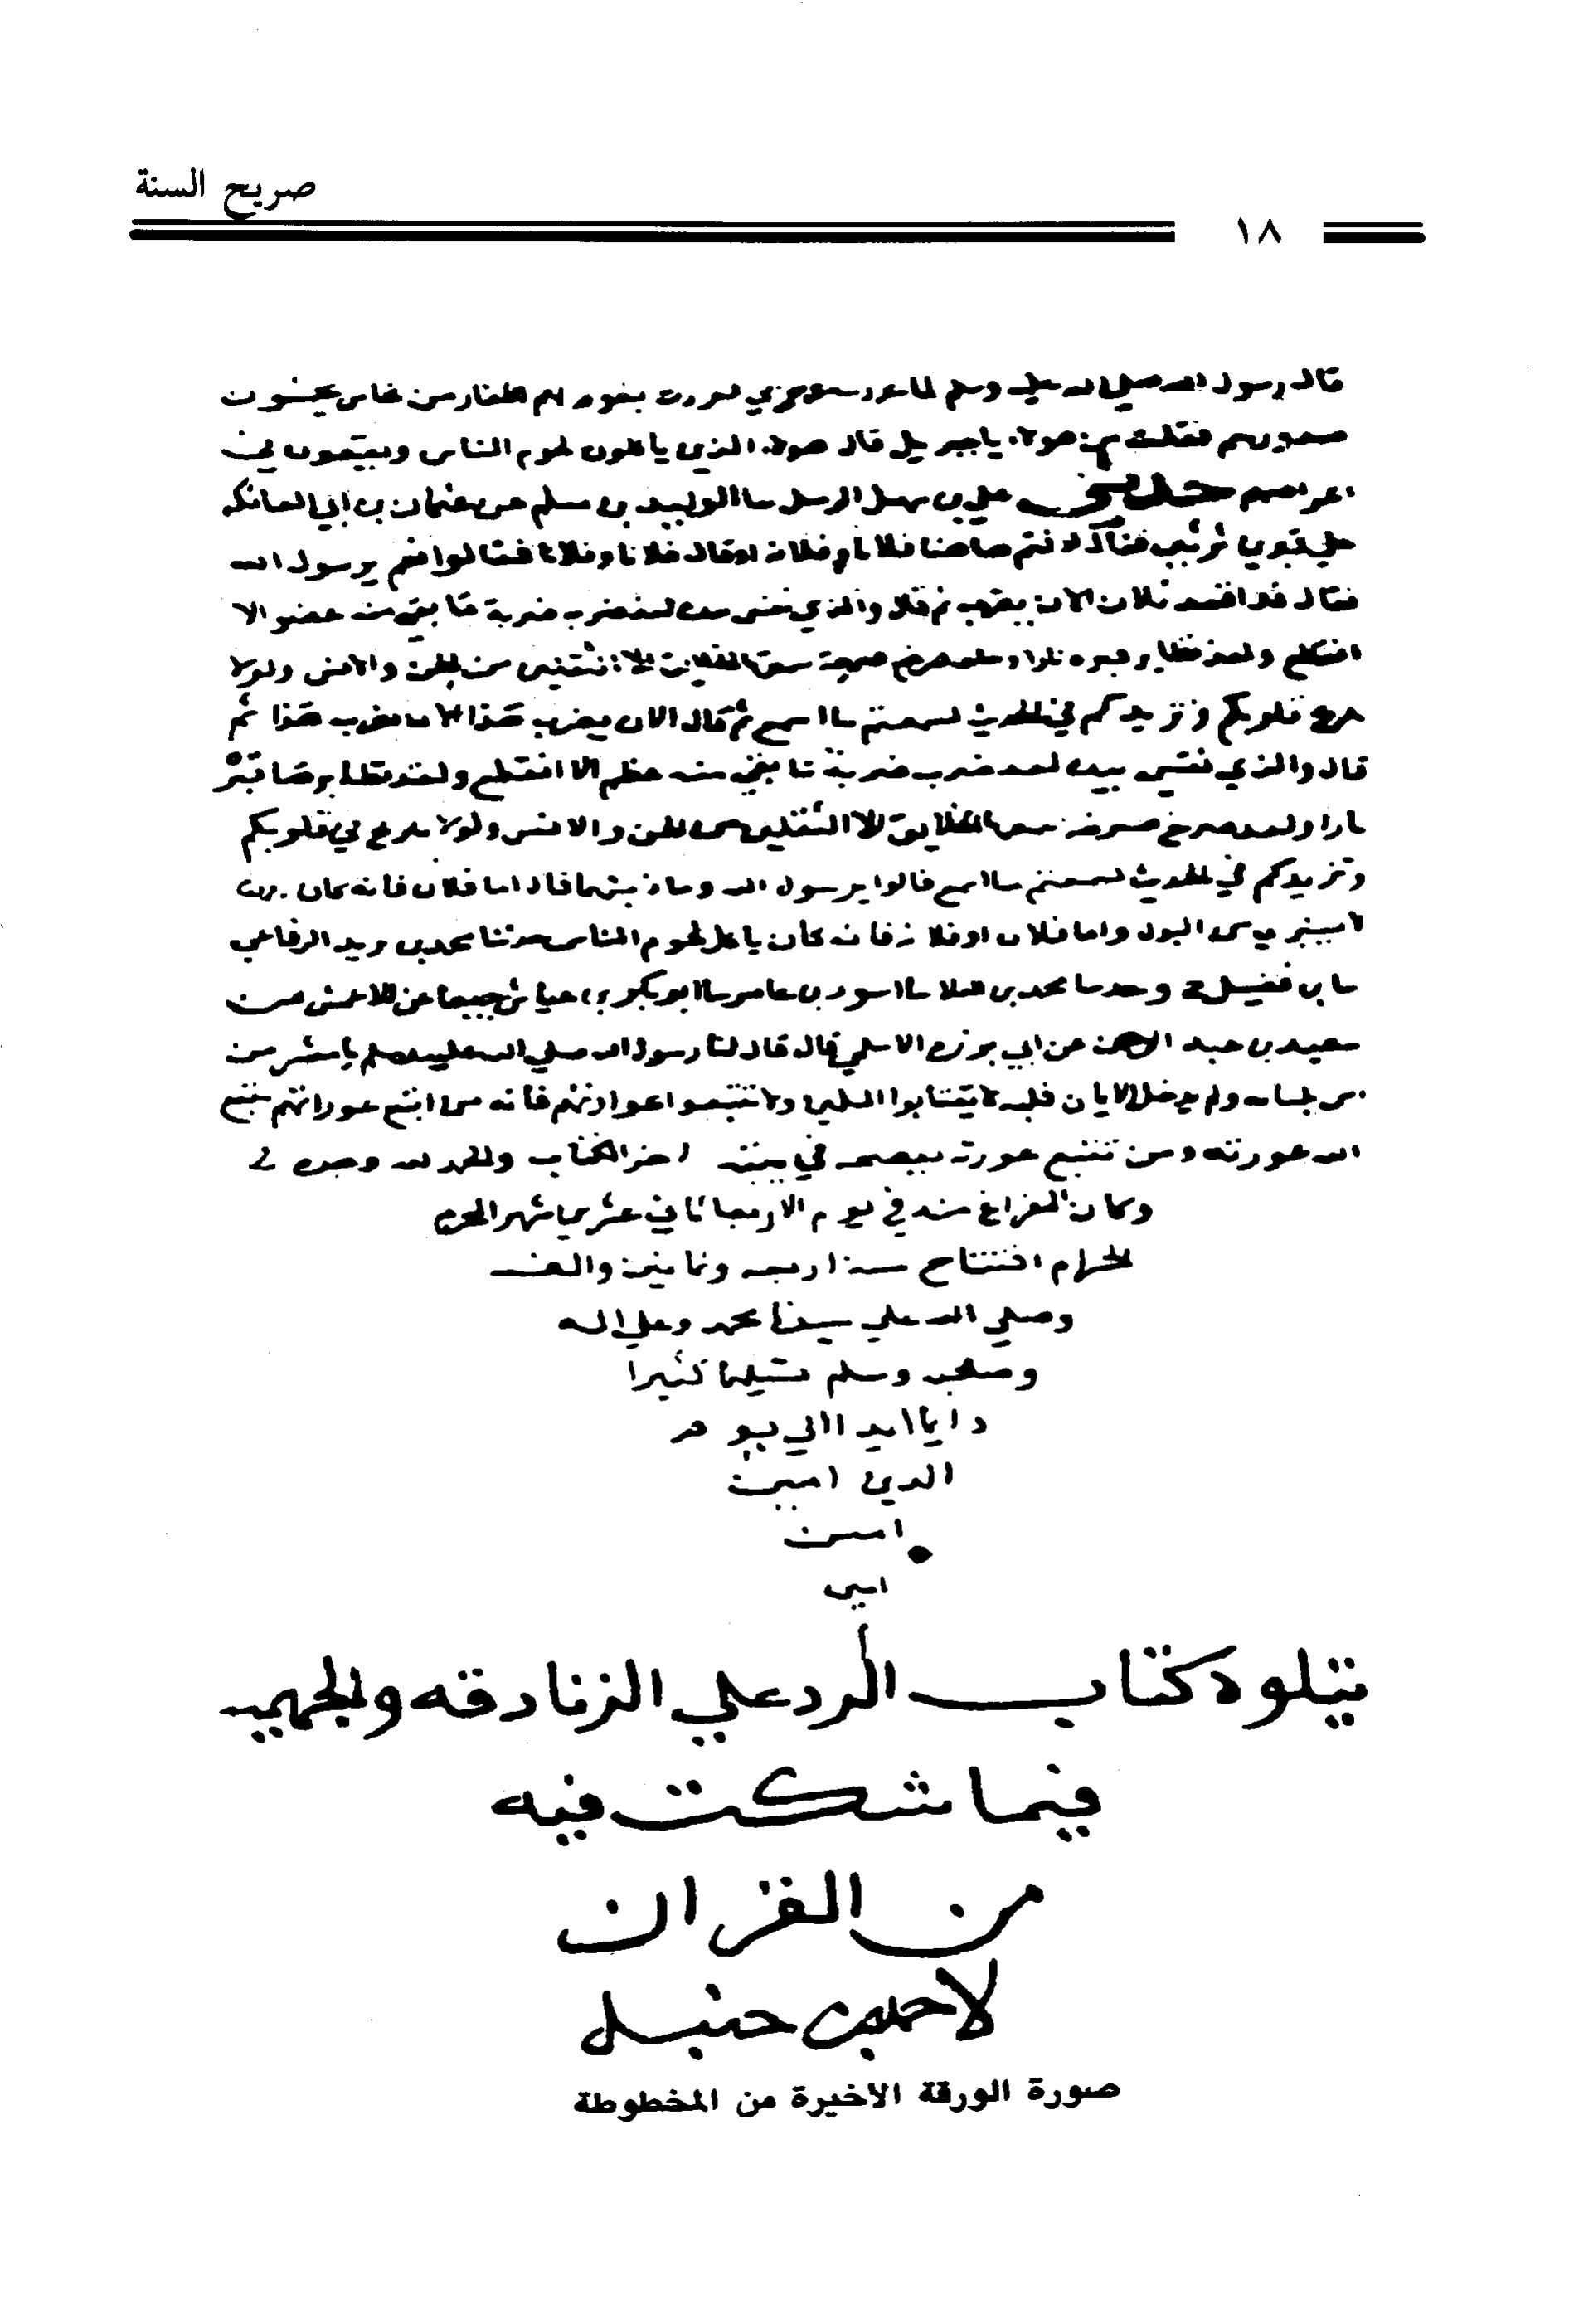 صريح السنة
١٨
قال رسول الله صلي الله عليه وسلم لما عرج بي مررت بقوم لهم اظفار من نحاس يخمشون
فقلت من هولاء ياجبريل قال هولاء الذي ياكلون لحوم الناس ويقعون في
اعراضهم حدثني علي بن سهل الرملي سا الوليد بن مسلم عن عثمان بن ابي العاتكه
فقال فلانا وفلانا فقالوا نعم يرسول الله
فقال قد اقعد فلان الان يضرب ثم قال والذي نفسي بيده لقد ضرب ضربة ما بقي منه عضو الا
انقطع ولقد تطاير قبره نارا ولقد صرخ صرخة سمعها الخلايق الا الثقلين من الجن والانس ولولا
قلوبكم وتزيدكم في الحديث لسمعتم ما اسمع ثم قال الان يضرب هذا الان يضرب هذا ثم
قال والذي نفسي بيده لقد ضرب ضربة ما بقي منه عظم الا انقطع ولقد تطاير قبره
نارا ولقد صرخ صرخة سمعها الخلايق الا الثقلين من الجن والانس ولولا في قلوبكم
وتزيدكم في الحديث لسمعتم ما اسمع قالوا يرسول الله وما ذنبهما قال اما فلان فانه كان
لا يستبري من البول واما فلان او فلانه فانه كان ياكل لحوم الناس حدثنا محمد بن يزيد الرفاعي
سا بن فضيل ح وحدسا محمد بن العلا سا اسود بن عامر سا ابو بكر بن عياش جميعا عن الاعمش عن
سعيد بن عبد الله عن ابي برزه الاسلمي قال قال لنا رسول الله صلي الله عليه وسلم يا معشر من
امن بلسانه ولم يدخل الايمان قلبه لا تغتابوا المسلمين ولا تتبعوا عوراتهم فانه من اتبع عوراتهم تتبع
الله عورته ومن تتبع عورته يفضحه في بيته اخر الكتاب والحمد لله وحده
وكان الفراغ منه في يوم الاربعا ثاني عشر شهر المحرم
الحرام افتتاح سنة اربعه وثمانين والف
وصلي الله علي سيدنا محمد وعلي اله
وصحبه وسلم تسليما كثيرا
دايما ابدا الي يوم
الدين امين
امين
امين
يتلوه كتاب الرد علي الزنادقه والجهميه
فيما شكت فيه
من القران
لاحمد بن حنبل
صورة الورقة الأخيرة من المخطوطة